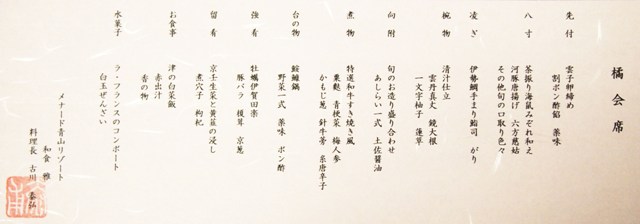 橘会席
先付
雲子卵締め
割ポン酢餡 薬味
八寸
茶振り海鼠みぞれ和え
河豚唐揚げ 六方慈姑
その他旬の口取り色々
凌ぎ
伊勢鯛手まり鮨司 がり
椀物
清汁仕立
雲丹真丈 鏡大根
一文字柚子 蓬草
向附
旬のお造り盛り合わせ
あしらい一式 土佐醤油
煮物
特選和牛すき焼き風
粟麩 青梗菜 梅人参
かもじ葱 針牛蒡 糸唐辛子
台の物
鮟鱇鍋
野菜一式 薬味 ポン酢
強肴
牡蠣伊賀田楽
豚バラ 榎茸 京葱
留肴
京壬生菜と黄韮の浸し
煮穴子 枸杞
お食事
津の白菜飯
赤出汁
香の物
水菓子
ラ・フランスのコンポート
白玉ぜんざい
メナード青山リゾート
和食 雅
料理長 古川